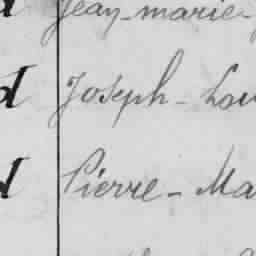 d Jean-marie-
d Joseph-Lou
d Pierre-Ma